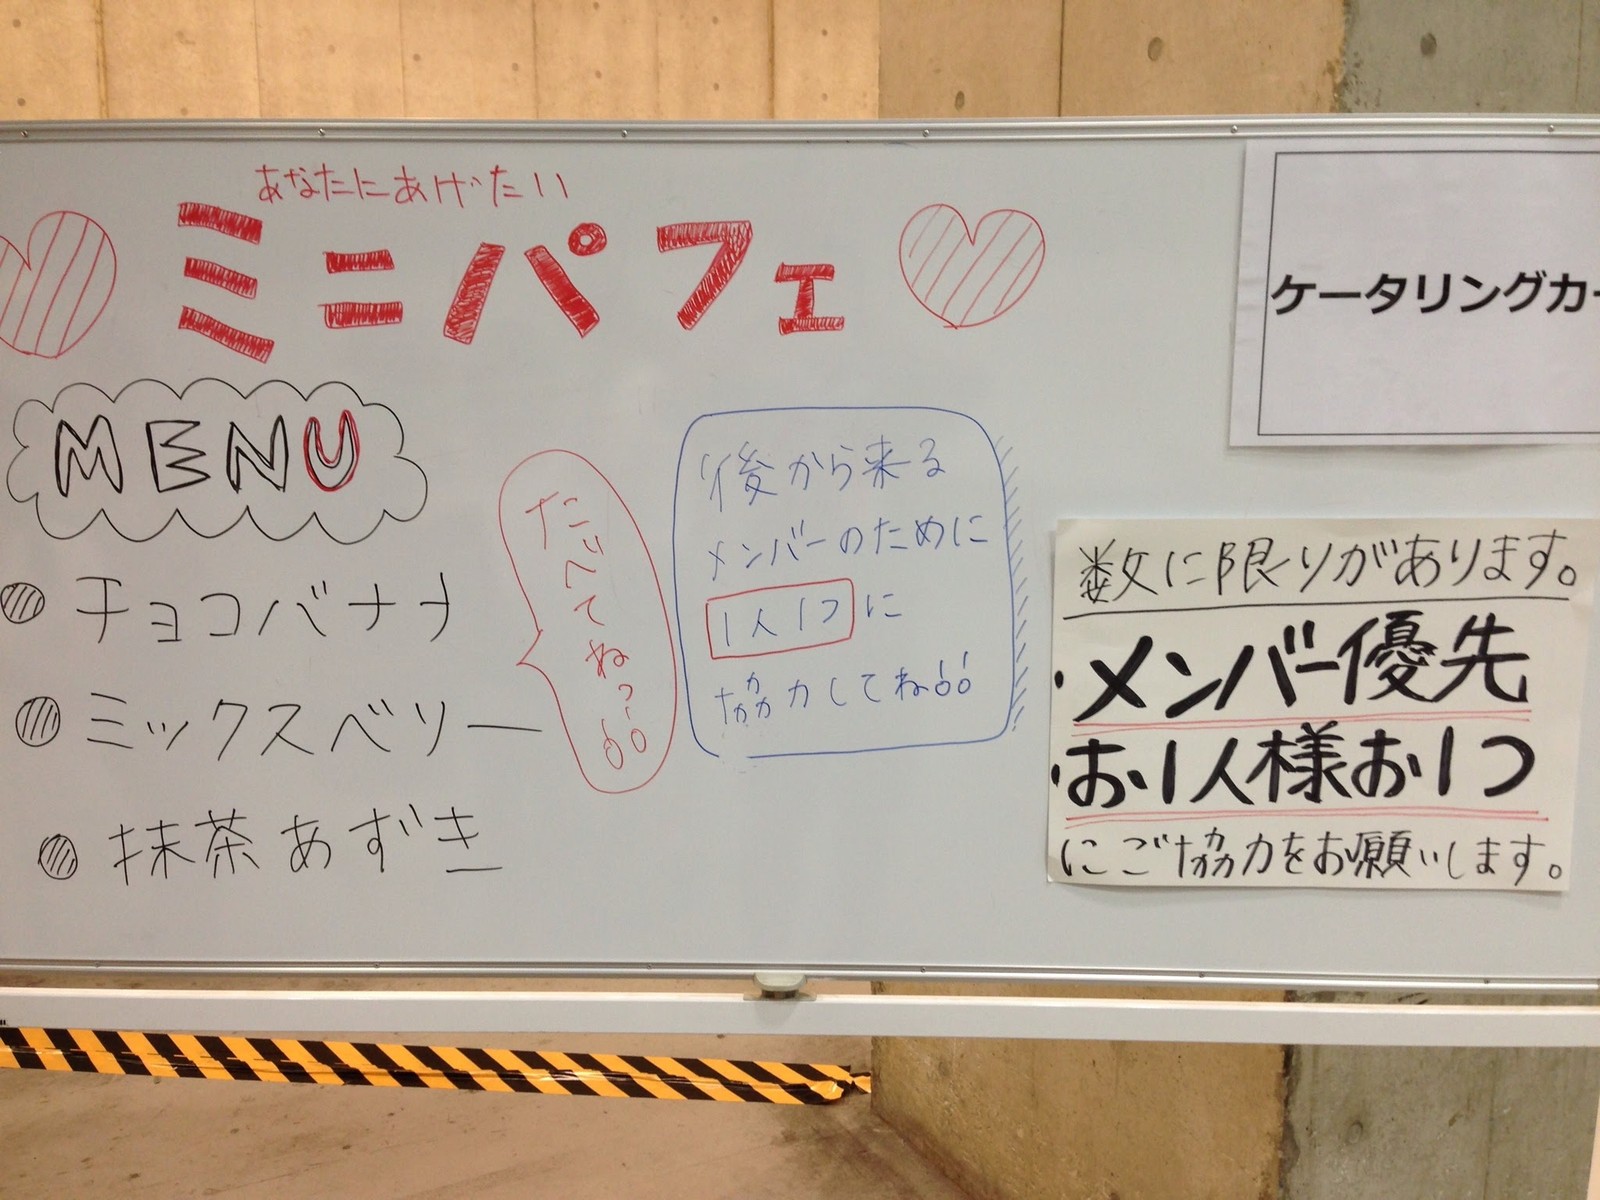 あなたにあげたい
ミニパフェ
MENU
チョコバナナ
ミックスベリー
抹茶あずき
たべてねっ!!
後から来る
メンバーのために
1人1つに
協力してね!!
ケータリングカー
数に限りがあります。
・メンバー優先
・お1人様お1つ
にご協力をお願いします。